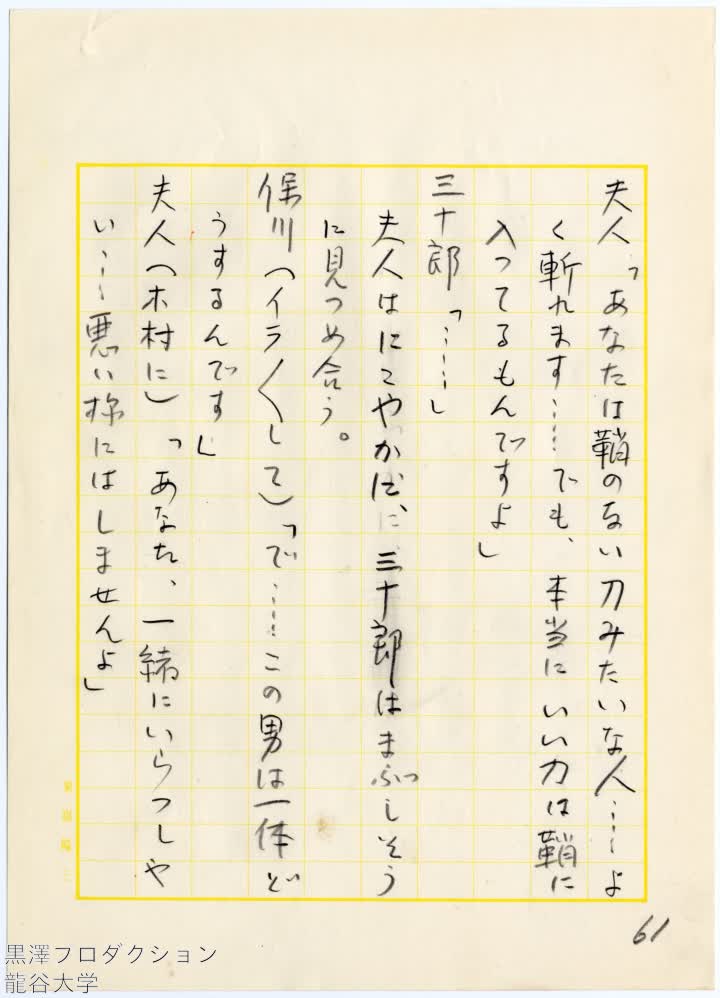 夫人「あなたは鞘のない刀みたいな人……よ
く斬れます……でも、本当にいい刀は鞘に
入ってるもんですよ」
三十郎「……」
夫人はにこやかだ、三十郎はまぶしそう
に見つめ合う。
保川（イラ〱して）「で……この男は一体ど
うするんです」
夫人（木村に）「あなた、一緒にいらつしや
い……悪い様にはしませんよ」
61
黒澤プロダクション
龍谷大学